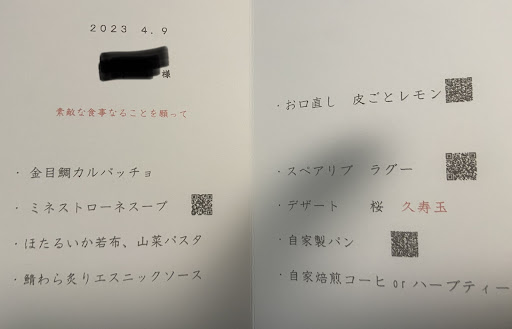 2023 4.9
様
素敵な食事なることを願って
・金目鯛カルパッチョ
・ミネストローネスープ
・ほたるいか若布、山菜パスタ
・鯖わら炙りエスニックソース
・お口直し 皮ごとレモン
・スペアリブ ラグー
・デザート 桜 久寿玉
・自家製パン
・自家焙煎コーヒ or ハーブティー